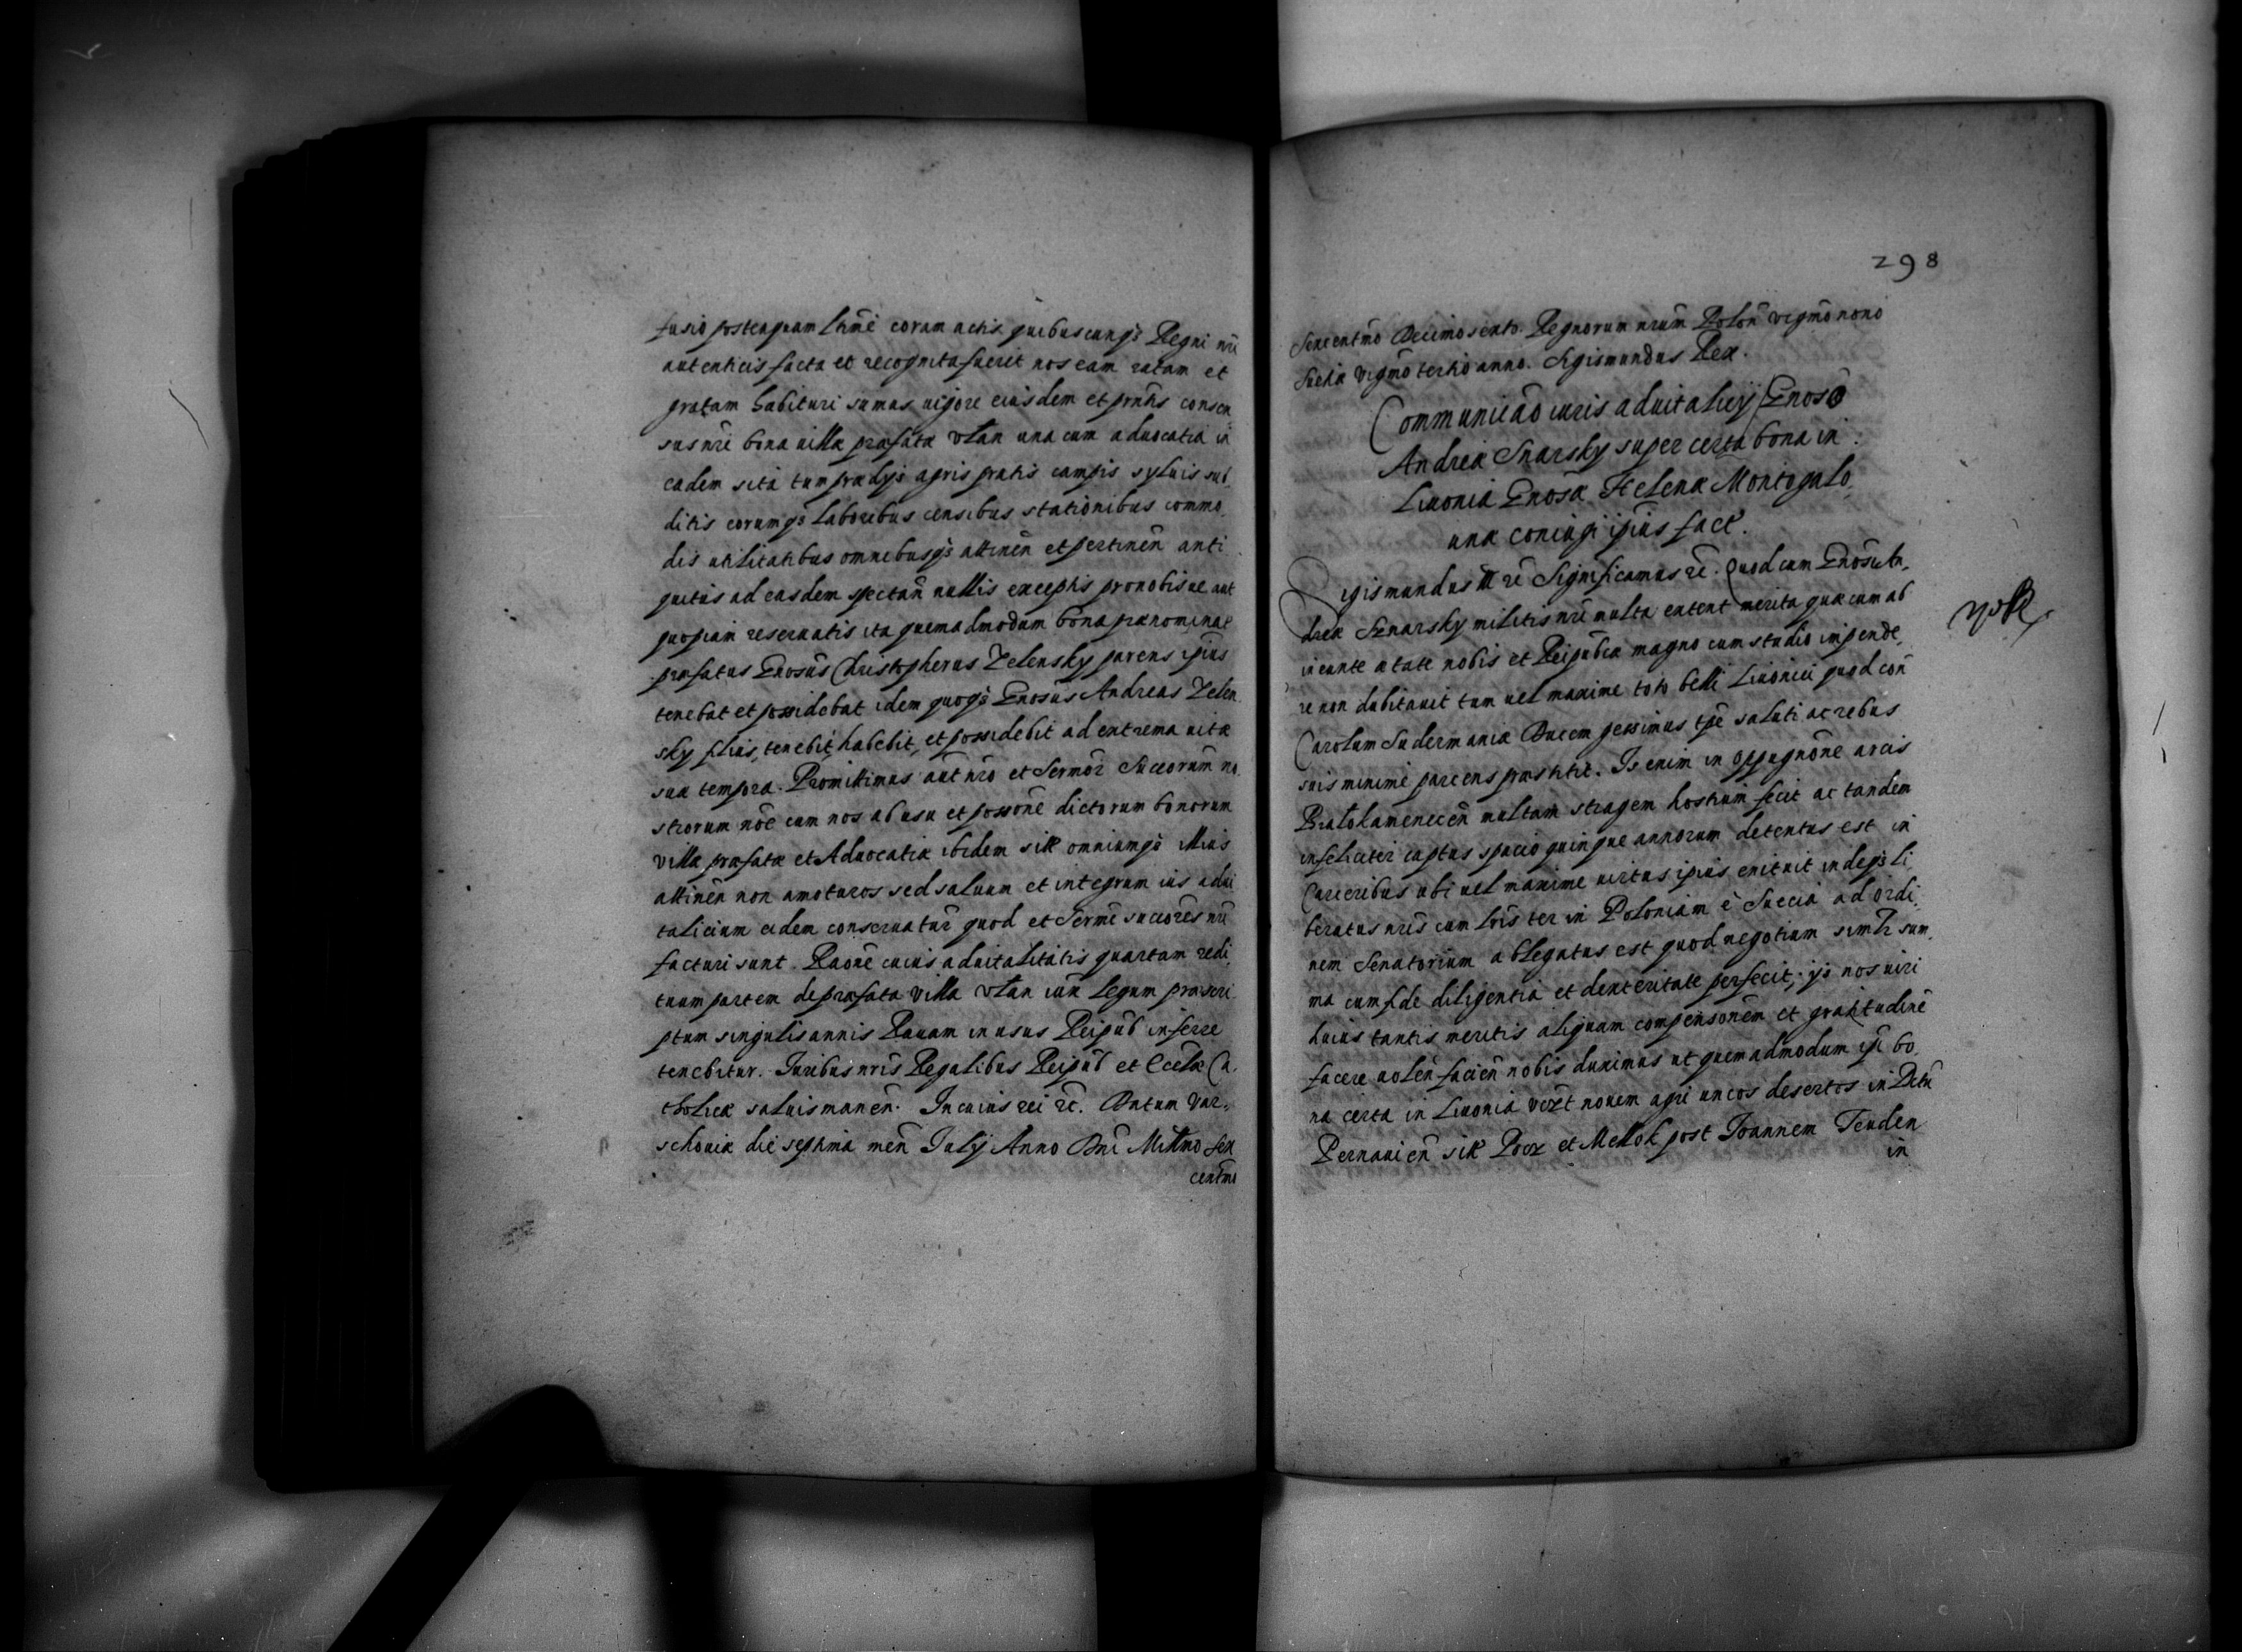 fusio posteaquam ltimé coram actis quibuscunqȝ Regni nri
autenticis facta et recognita fuerit nos eam ratam et
gratam habituri sumus uigore eiusdem et pntis consen
sus nri bona uillæ præfatæ vtan una cum aduocatia in
eadem sita tum prædijs agris pratis campis syluis sub,
ditis eorumqȝ laboribus censibus stationibus commo,
dis utilitatibus omnibusqȝ attinen̄ et pertinen̄ anti
quitus ad easdem spectan̄ nullis exceptis pro nobis ue aut
quopiam reseruatis ita quemadmodum bona prænominat
præfatus Gnosus Christopherus Zelensky parens ipius
tenebat et possidebat idem quoqȝ Gnosus Andreas Zelen
sky filius, tenebit, habebit, et possidebit ad extrema uitæ
suæ tempora. Promittimus aut nro et Sermor Succorum no
strorum nōē eum nos ab usu et possōne dictorum bonorum
villæ præfatæ et Aduocatiæ ibidem sitæ omniumqȝ illius
attinen̄ non amoturos sed saluum et integrum ius adui
talicium eidem conseruatur̄ quod et Sermi succōres nri
facturi sunt. Raōne cuius aduitalitatis quartam redi,
tuum partem de præfata villa vtan iux legum præscri
ptum singulis annis Rauam in usus Reipub inferre
tenebitur. Iuribus nris Regalibus Reipub et Ecclæ Ca,
tholicæ saluis manen̄. In cuius rei &c. Datum Var,
schouiæ die septima men̄ Iulij Anno Dni Millmo sex
centmo
298
Sexcentmo Decimosexto. Regnorum nrum Polon̄ vigmo nono
Sueciæ vigmo tertio anno. Sigismundus Rex.
Communicāo iuris aduitalicij Gnoso
Andreæ Snarsky super certa bona in
Liuonia Gnosæ Helenæ Montogalo,
unæ coniugi ipius fact.
Sigismundus III &c Significamus &c. Quod cum Gnosi An,
dreæ Sznarsky militis nri multa extent merita quæ cum ab
ineunte ætate nobis et Reipublæ magno cum studio inpende,
re non dubitauit tum uel maxime toto belli Liuonici quod con̄
Carolum Sudermaniæ Ducem gessimus tpē saluti ac rebus
suis minimé parcens præstitit. Is enim in oppugnōne arcis
Bialokamenecen̄ multam stragem hostium fecit ac tandem
infeliciter captus spacio quinque annorum detentus est in
Carceribus ubi uel maxime uirtus ipius enituit indeqȝ li,
beratus nris cum lris ter in Poloniam è Suecia ad ordi,
nem Senatorium ablegatus est quod negotium simlr sum,
ma cum fide diligentia et dexteritate perfecit; ijs nos uiri
huius tantis meritis aliquam compensōnem et gratitudinē
facere uolen̄ facien̄ nobis duximus ut quemadmodum ipi bo,
na certa in Liuonia vizt nouem agri uncos desertos in Dctu
Pernauien̄ sitæ Pooz et Mellok post Ioannem Teuden
in